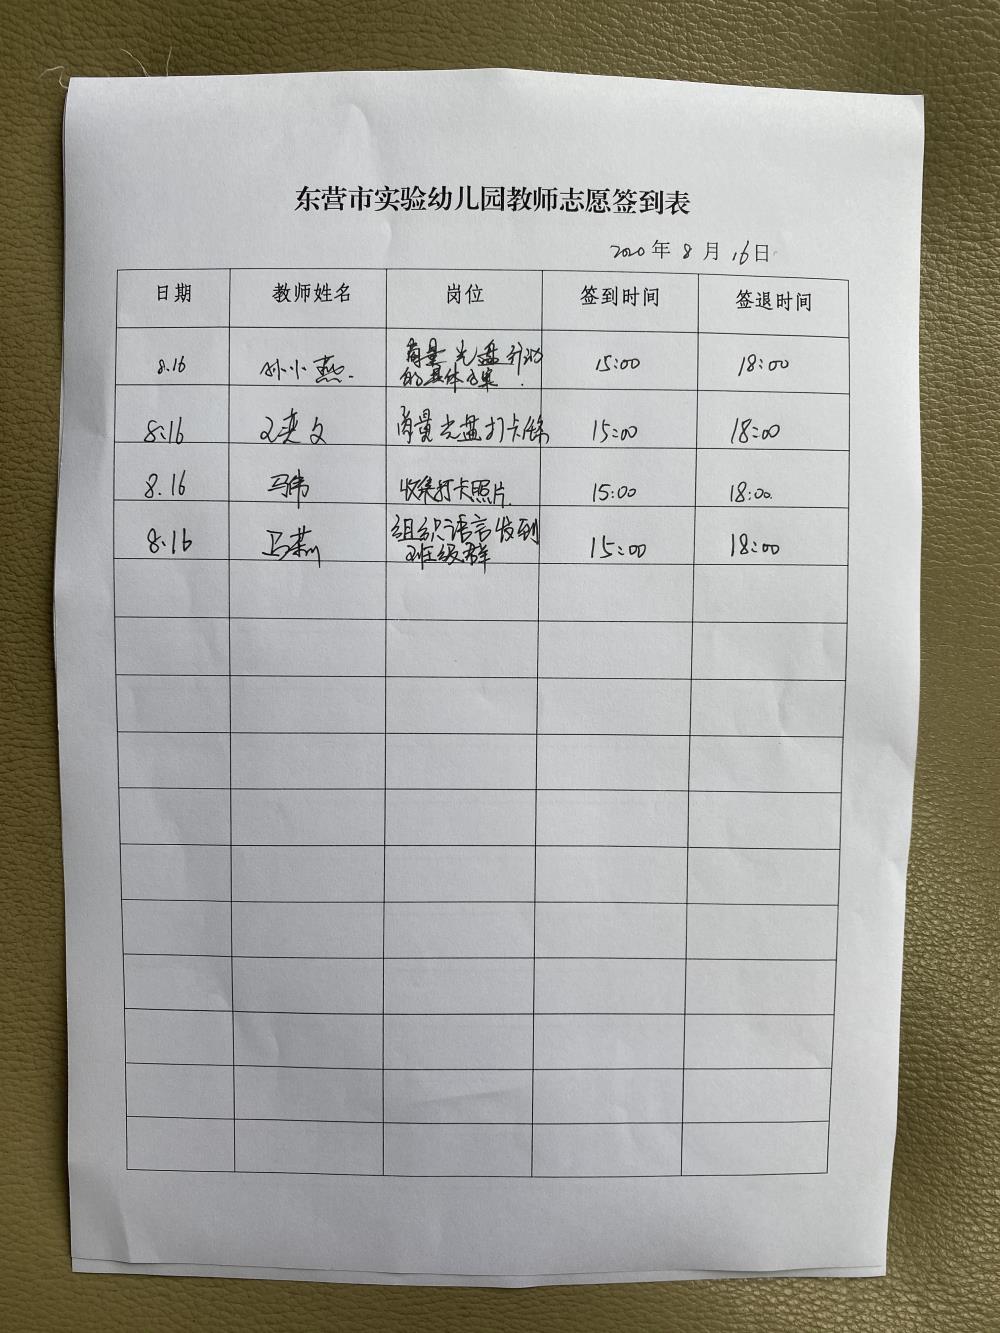 东营市实验幼儿园教师志愿签到表
2020 年 8 月 16 日
日期 教师姓名 岗位 签到时间 签退时间
8.16 孙小燕. 商量光盘行动的具体方案. 15:00 18:00
8.16 文 商量光盘打卡 15:00 18:00
8.16 马伟 收集打卡照片. 15:00 18:00.
8.16 马莉 组织语言发到班级群 15:00 18:00